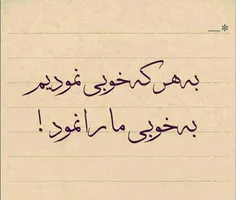 به هر که خوبی نمودیم
به خوبی ما را نمود !